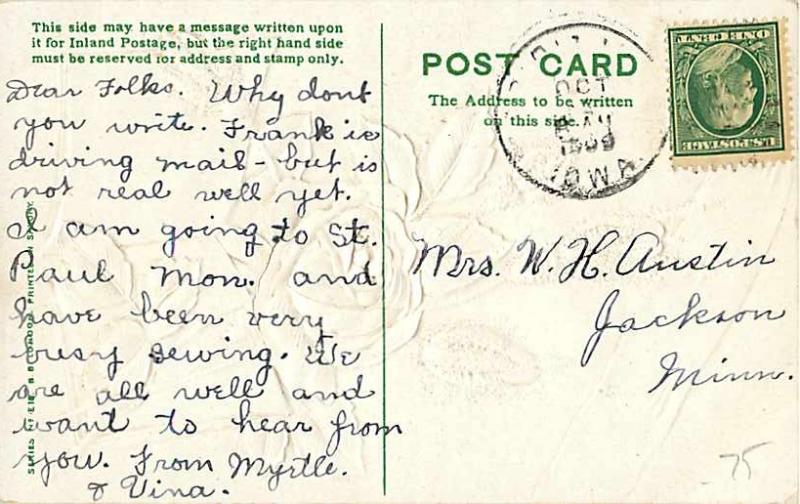 This side may have a message written upon
it for Inland Postage, but the right hand side
must be reserved for address and stamp only.
Dear Folks. Why dont
you write. Frank is
driving mail - but is
not real well yet.
I am going to St.
Paul Mon. and
have been very
busy sewing. We
are all well and
want to hear from
you. From Myrtle.
& Vina.
POST CARD
The Address to be written
on this side.
OCT
1909
IOWA
U.S. POSTAGE
ONE CENT
Mrs. W. H. Austin
Jackson
Minn.
75
PRINTED IN SAXONY.